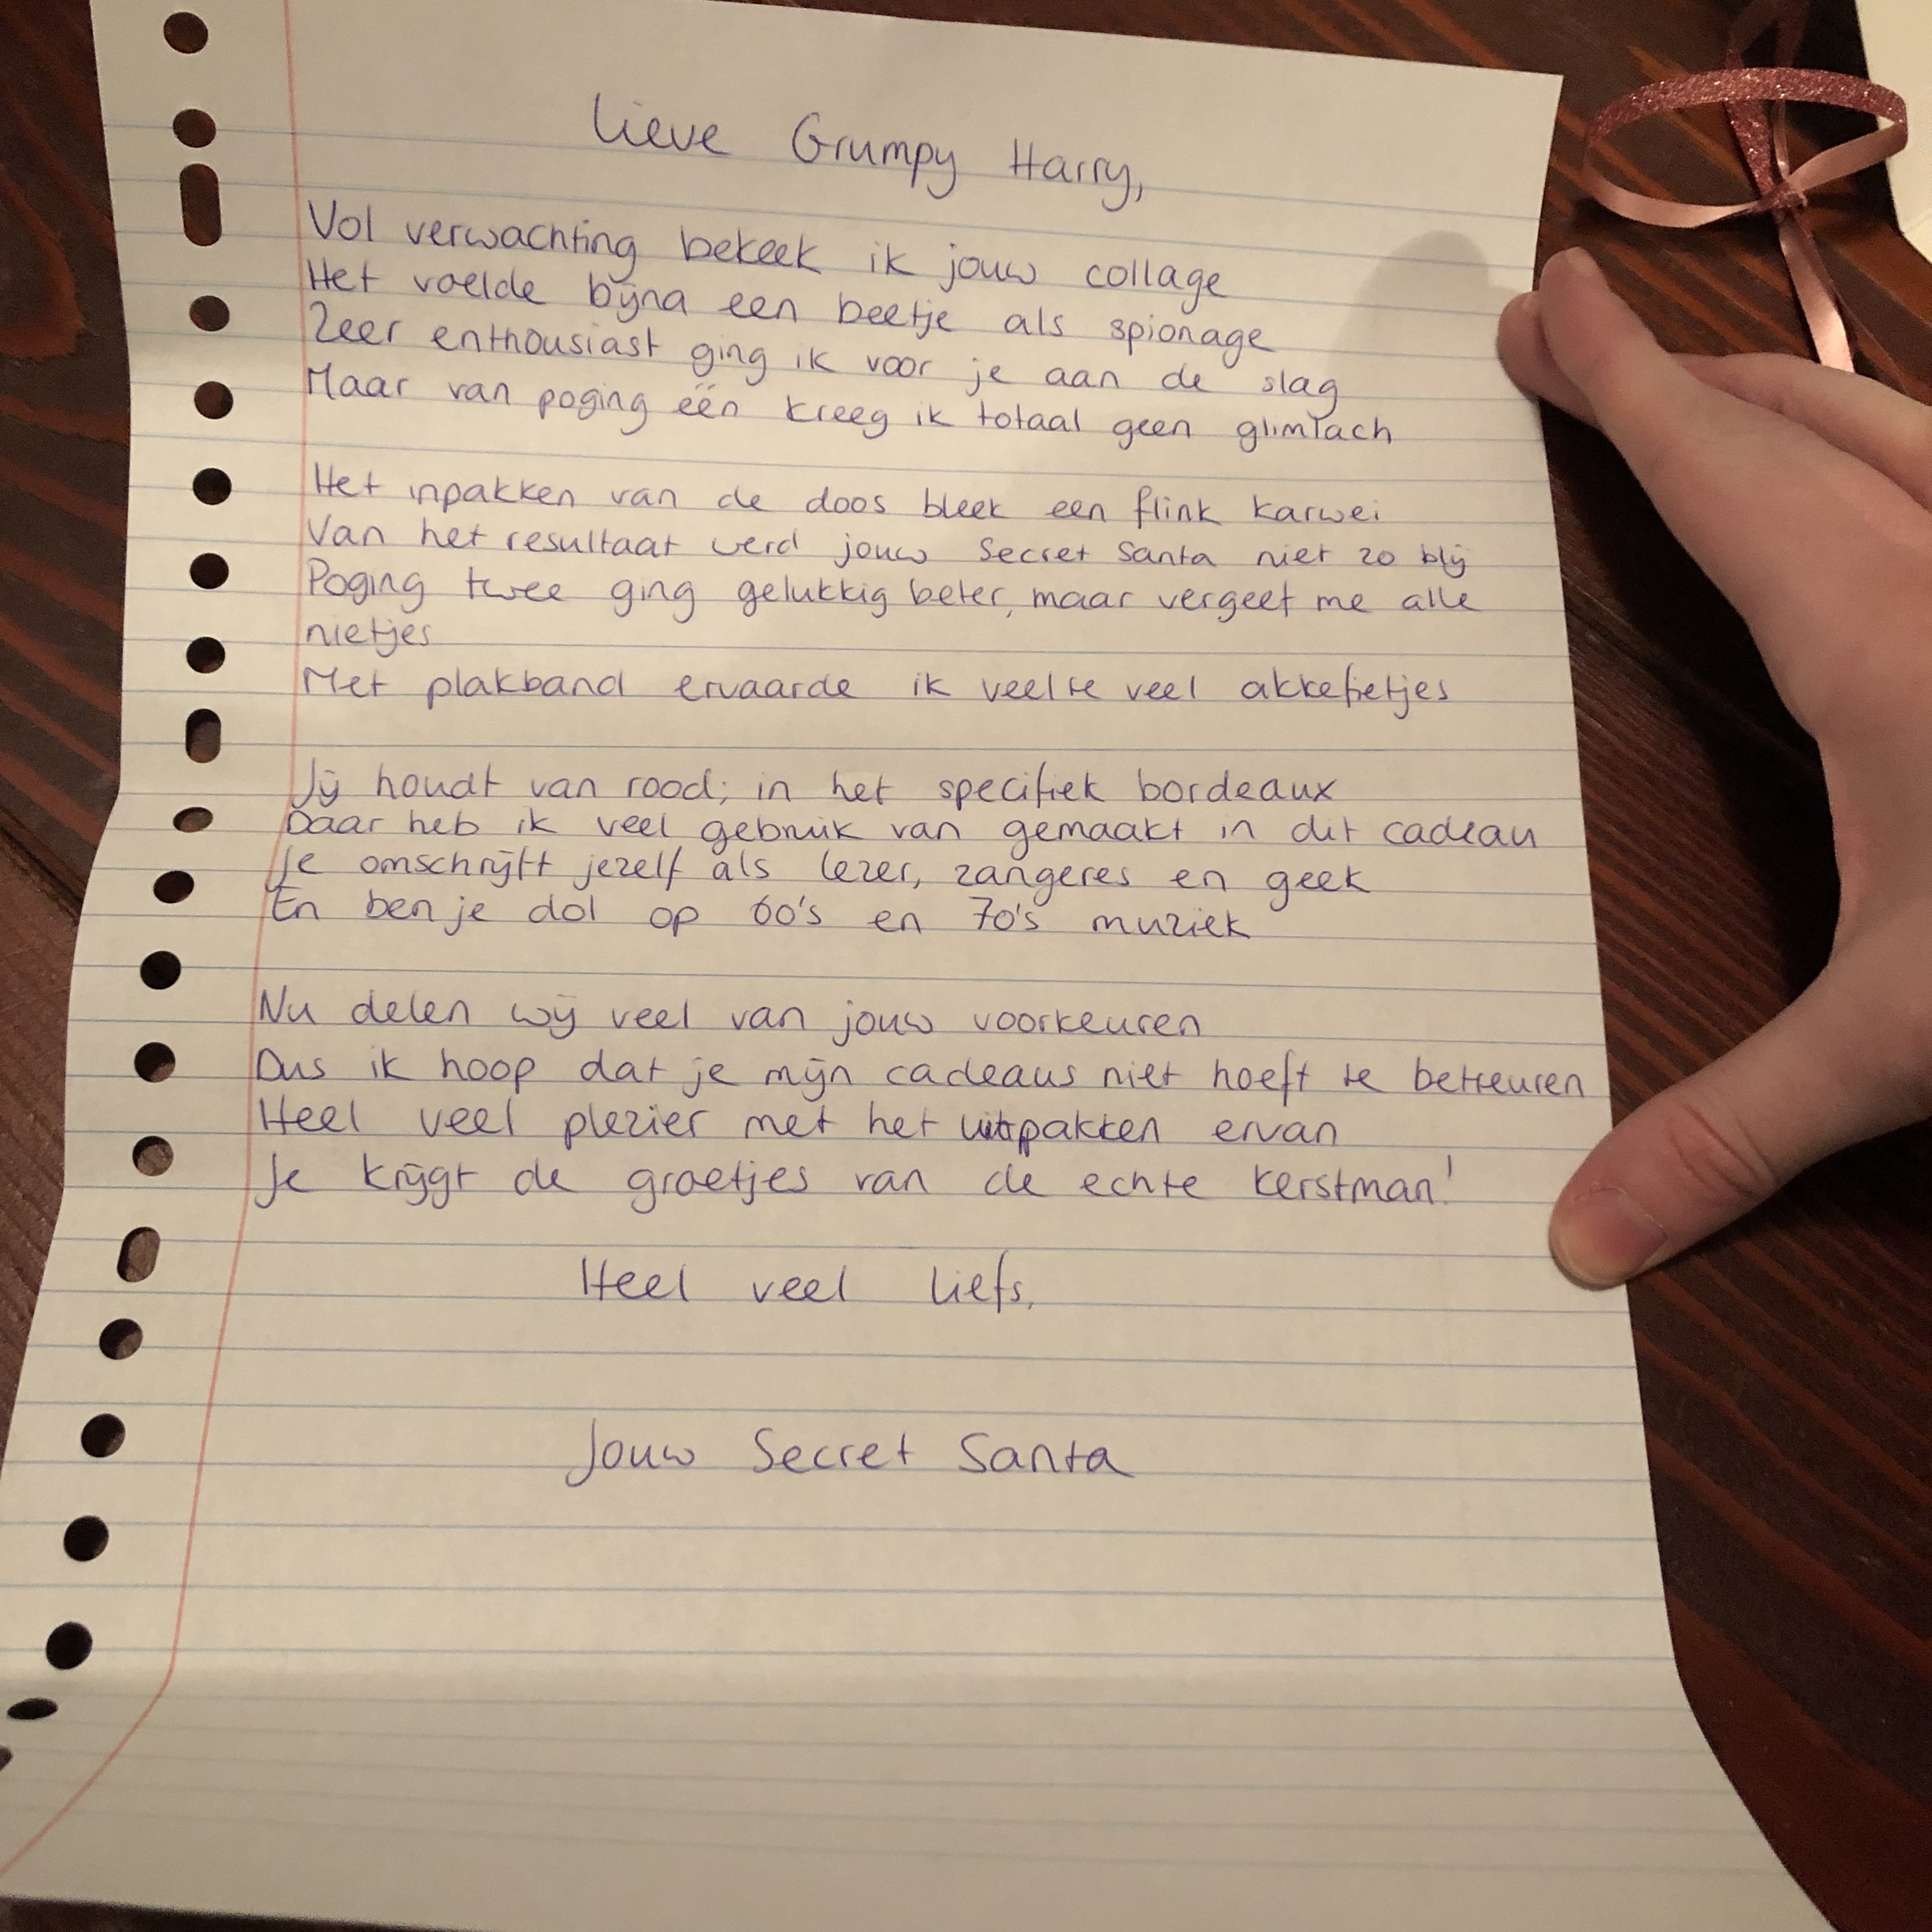 Lieve Grumpy Harry,
Vol verwachting bekeek ik jouw collage
Het voelde bijna een beetje als spionage
Zeer enthousiast ging ik voor je aan de slag
Maar van poging één kreeg ik totaal geen glimlach
Het inpakken van de doos bleek een flink karwei
Van het resultaat werd jouw Secret Santa niet zo blij
Poging twee ging gelukkig beter, maar vergeef me alle
nietjes
Met plakband ervaarde ik veel te veel akkefietjes
Jij houdt van rood; in het specifiek bordeaux
Daar heb ik veel gebruik van gemaakt in dit cadeau
Je omschrijft jezelf als lezer, zangeres en geek
En ben je dol op 60's en 70's muziek
Nu delen wij veel van jouw voorkeuren
Dus ik hoop dat je mijn cadeaus niet hoeft te betreuren
Heel veel plezier met het uitpakken ervan
Je krijgt de groetjes van de echte kerstman!
Heel veel liefs,
Jouw Secret Santa